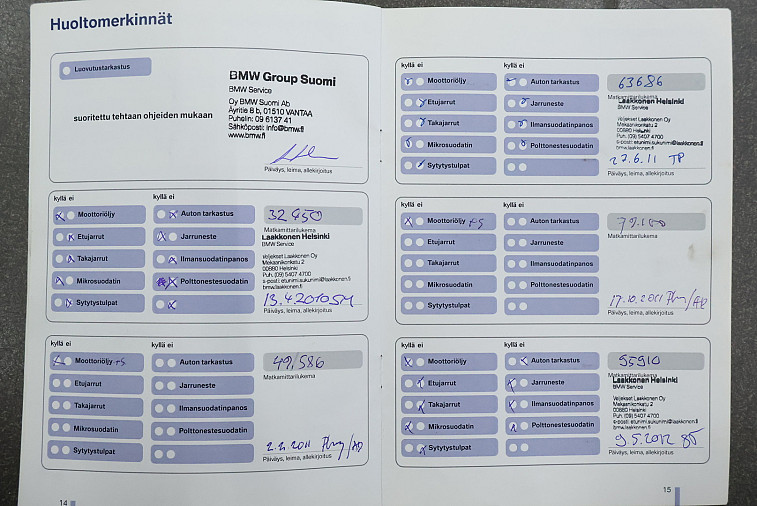 Huoltomerkinnät
Luovutustarkastus
suoritettu tehtaan ohjeiden mukaan
BMW Group Suomi
BMW Service
Oy BMW Suomi Ab
Äyritie 8 b, 01510 VANTAA
Puhelin: 09 6137 41
Sähköposti: info@bmw.fi
www.bmw.fi
Päiväys, leima, allekirjoitus
kyllä ei
kyllä ei
Moottoriöljy
Auton tarkastus
Etujarrut
Jarruneste
Takajarrut
Ilmansuodatinpanos
Mikrosuodatin
Polttonestesuodatin
Sytytystulpat
32450
Matkamittarilukema
Laakkonen Helsinki
BMW Service
Veljekset Laakkonen Oy
Mekaanikonkatu 2
00880 Helsinki
Puh. (09) 5407 4700
s-posti: etunimi.sukunimi@laakkonen.fi
bmw.laakkonen.fi
13.4.2010 SM
Päiväys, leima, allekirjoitus
kyllä ei
kyllä ei
Moottoriöljy +s
Auton tarkastus
Etujarrut
Jarruneste
Takajarrut
Ilmansuodatinpanos
Mikrosuodatin
Polttonestesuodatin
Sytytystulpat
49,586
Matkamittarilukema
2.2.2011
Päiväys, leima, allekirjoitus
14
kyllä ei
kyllä ei
Moottoriöljy
Auton tarkastus
Etujarrut
Jarruneste
Takajarrut
Ilmansuodatinpanos
Mikrosuodatin
Polttonestesuodatin
Sytytystulpat
63686
Matkamittarilukema
Laakkonen Helsinki
BMW Service
Veljekset Laakkonen Oy
Mekaanikonkatu 2
00880 Helsinki
Puh. (09) 5407 4700
s-posti: etunimi.sukunimi@laakkonen.fi
bmw.laakkonen.fi
27.6.11 TP
Päiväys, leima, allekirjoitus
kyllä ei
kyllä ei
Moottoriöljy +s
Auton tarkastus
Etujarrut
Jarruneste
Takajarrut
Ilmansuodatinpanos
Mikrosuodatin
Polttonestesuodatin
Sytytystulpat
Matkamittarilukema
17.10.2011
Päiväys, leima, allekirjoitus
kyllä ei
kyllä ei
Moottoriöljy
Auton tarkastus
Etujarrut
Jarruneste
Takajarrut
Ilmansuodatinpanos
Mikrosuodatin
Polttonestesuodatin
Sytytystulpat
95910
Matkamittarilukema
Laakkonen Helsinki
BMW Service
Veljekset Laakkonen Oy
Mekaanikonkatu 2
00880 Helsinki
Puh. (09) 5407 4700
s-posti: etunimi.sukunimi@laakkonen.fi
bmw.laakkonen.fi
9.5.2012
Päiväys, leima, allekirjoitus
15